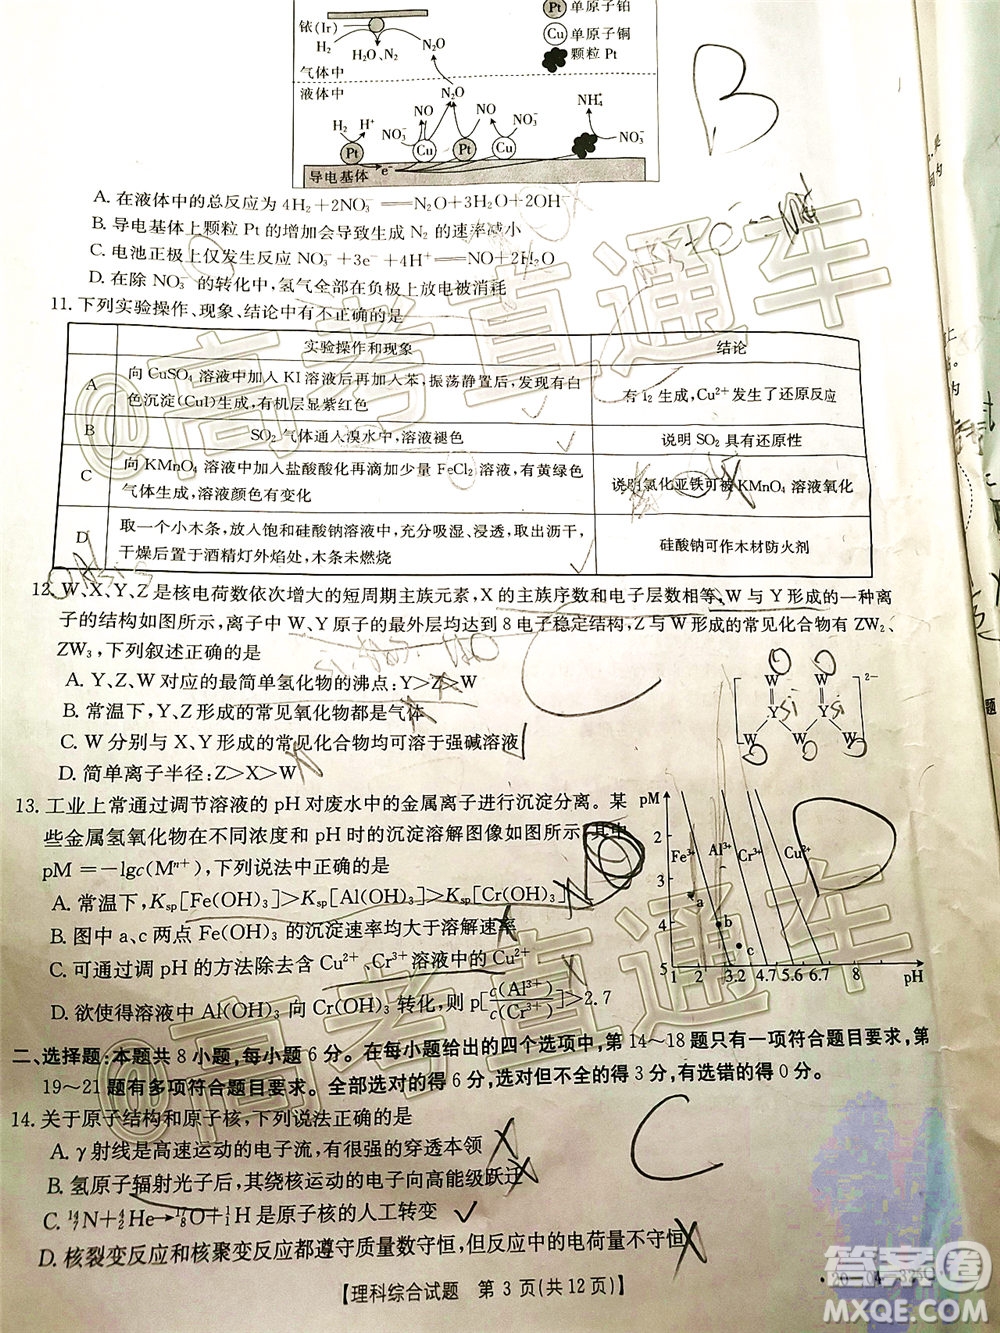 Pt 单原子铂
铱(Ir)
Cu 单原子铜
H₂ H₂O、N₂ N₂O
颗粒 Pt
气体中
液体中
N₂O
H₂ H⁺ NO₃⁻ NO NO NO₃⁻ NH₄⁺ NO₃⁻
Pt Cu Pt Cu
导电基体 e⁻
B
A. 在液体中的总反应为 4H₂+2NO₃⁻══N₂O+3H₂O+2OH⁻
B. 导电基体上颗粒 Pt 的增加会导致生成 N₂ 的速率减小
C. 电池正极上仅发生反应 NO₃⁻+3e⁻+4H⁺══NO+2H₂O
D. 在除 NO₃⁻ 的转化中,氢气全部在负极上放电被消耗
11. 下列实验操作、现象、结论中有不正确的是
实验操作和现象 结论
A 向 CuSO₄ 溶液中加入 KI 溶液后再加入苯,振荡静置后,发现有白
色沉淀(CuI)生成,有机层显紫红色 有 I₂ 生成,Cu²⁺ 发生了还原反应
B SO₂ 气体通入溴水中,溶液褪色 说明 SO₂ 具有还原性
C 向 KMnO₄ 溶液中加入盐酸酸化再滴加少量 FeCl₂ 溶液,有黄绿色
气体生成,溶液颜色有变化 说明氯化亚铁可被 KMnO₄ 溶液氧化
D 取一个小木条,放入饱和硅酸钠溶液中,充分吸湿、浸透,取出沥干,
干燥后置于酒精灯外焰处,木条未燃烧 硅酸钠可作木材防火剂
12. W、X、Y、Z 是核电荷数依次增大的短周期主族元素,X 的主族序数和电子层数相等,W 与 Y 形成的一种离
子的结构如图所示,离子中 W、Y 原子的最外层均达到 8 电子稳定结构,Z 与 W 形成的常见化合物有 ZW₂、
ZW₃,下列叙述正确的是
A. Y、Z、W 对应的最简单氢化物的沸点:Y>Z>W
B. 常温下,Y、Z 形成的常见氧化物都是气体
C. W 分别与 X、Y 形成的常见化合物均可溶于强碱溶液
D. 简单离子半径:Z>X>W
W W 2-
Y Y
W W W
C
13. 工业上常通过调节溶液的 pH 对废水中的金属离子进行沉淀分离。某
些金属氢氧化物在不同浓度和 pH 时的沉淀溶解图像如图所示,其中
pM=-lgc(Mⁿ⁺),下列说法中正确的是
A. 常温下,Ksp[Fe(OH)₃]>Ksp[Al(OH)₃]>Ksp[Cr(OH)₃]
B. 图中 a、c 两点 Fe(OH)₃ 的沉淀速率均大于溶解速率
C. 可通过调 pH 的方法除去含 Cu²⁺、Cr³⁺ 溶液中的 Cu²⁺
D. 欲使得溶液中 Al(OH)₃ 向 Cr(OH)₃ 转化,则 p[c(Al³⁺)/c(Cr³⁺)]>2.7
pM
2
Fe³⁺ Al³⁺ Cr³⁺ Cu²⁺
3
a
4 b
c
5
1 2 3.2 4.7 5.6 6.7 8 pH
二、选择题:本题共 8 小题,每小题 6 分。在每小题给出的四个选项中,第 14～18 题只有一项符合题目要求,第
19～21 题有多项符合题目要求。全部选对的得 6 分,选对但不全的得 3 分,有选错的得 0 分。
14. 关于原子结构和原子核,下列说法正确的是
A. γ 射线是高速运动的电子流,有很强的穿透本领
B. 氢原子辐射光子后,其绕核运动的电子向高能级跃迁
C. ¹⁴₇N+⁴₂He→¹⁷₈O+¹₁H 是原子核的人工转变
D. 核裂变反应和核聚变反应都遵守质量数守恒,但反应中的电荷量不守恒
C
【理科综合试题 第 3 页(共 12 页)】
@高考直通车
@高考直通车
答案圈
MXQE.COM